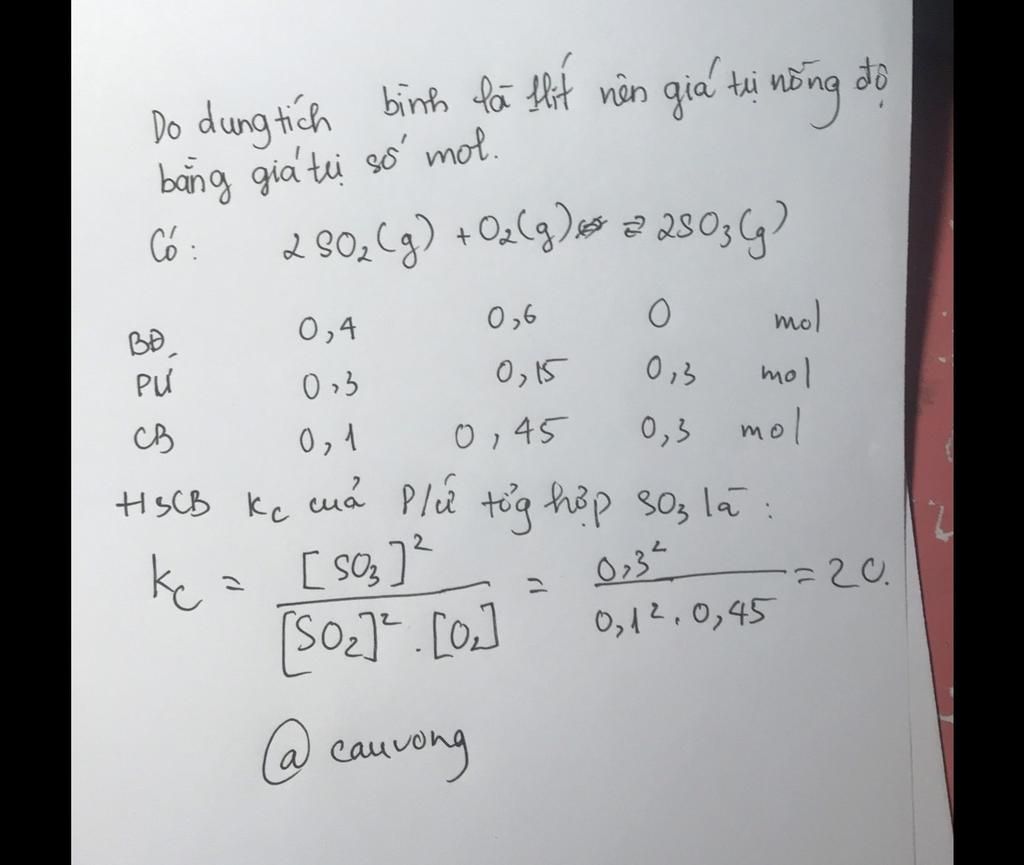 Do dung tích bình là 1 lít nên giá trị nồng độ
bằng giá trị số mol.
Có: 2SO₂(g) + O₂(g) ⇌ 2SO₃(g)
BĐ 0,4 0,6 0 mol
PƯ 0,3 0,15 0,3 mol
CB 0,1 0,45 0,3 mol
HSCB Kc của P/ứ tổg hợp SO₃ là:
Kc = [SO₃]² / [SO₂]² . [O₂] = 0,3² / 0,1² . 0,45 = 20.
@cauvong